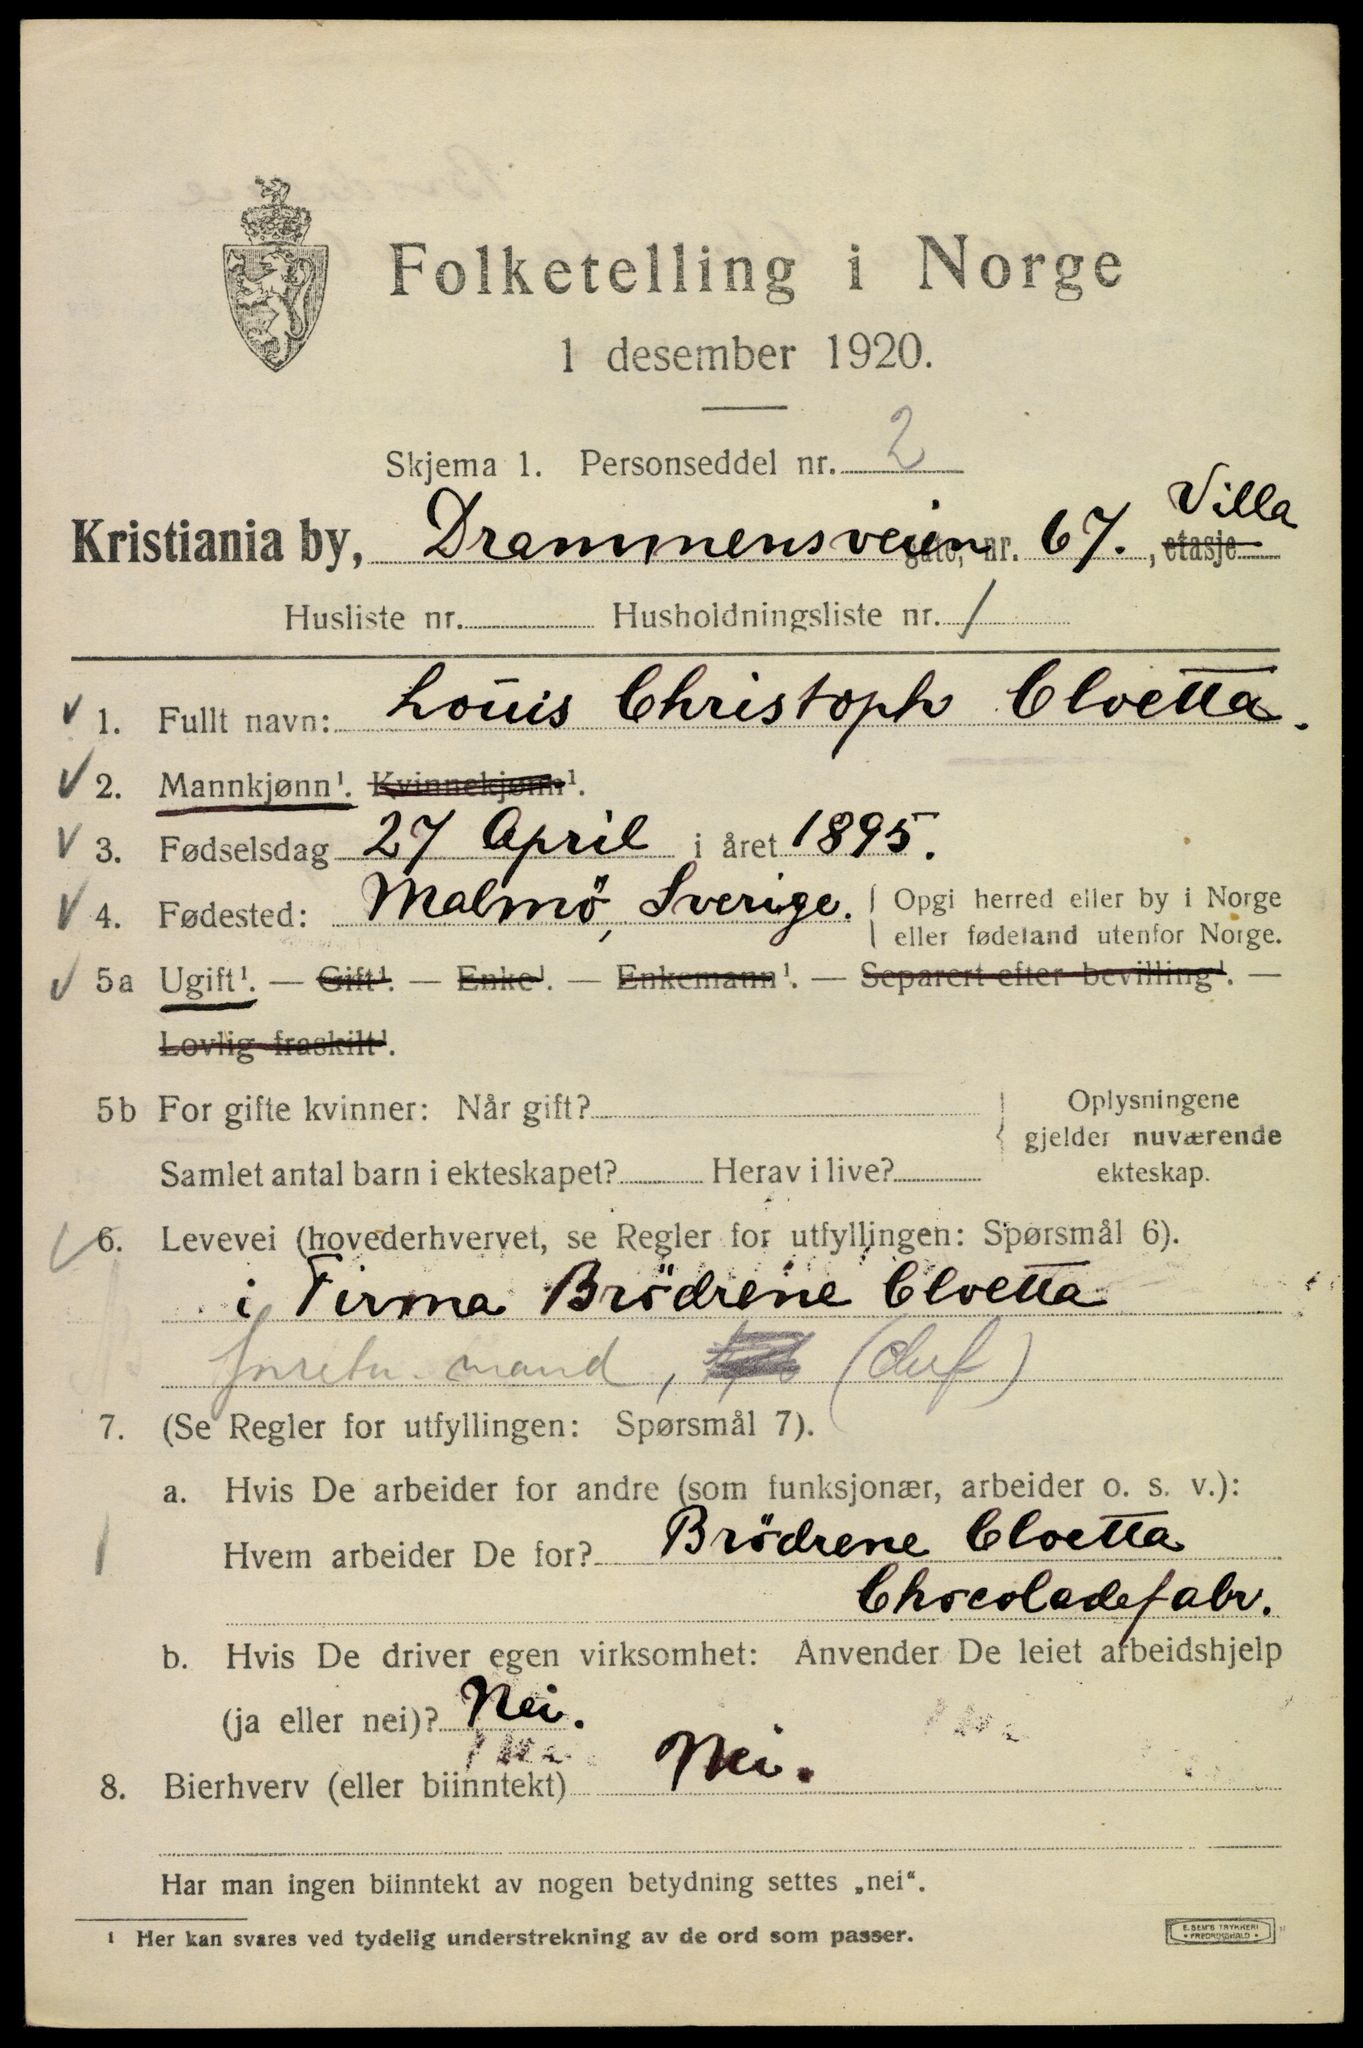 Folketelling i Norge
1 desember 1920.
Skjema 1. Personseddel nr. 2
Villa
Kristiania by, Drammensveien gate, nr. 67. , etasje
Husliste nr. Husholdningsliste nr. 1
1. Fullt navn: Louis Christoph Cloetta.
2. Mannkjønn¹. Kvinnekjønn¹.
3. Fødselsdag 27 April i året 1895.
4. Fødested: Malmö, Sverige. Opgi herred eller by i Norge
eller fødeland utenfor Norge.
5a Ugift¹. — Gift¹. — Enke¹. — Enkemann¹. — Separert efter bevilling¹. —
Lovlig fraskilt¹.
5b For gifte kvinner: Når gift? Oplysningene
gjelder nuværende
Samlet antal barn i ekteskapet? Herav i live? ekteskap.
6. Levevei (hovederhvervet, se Regler for utfyllingen: Spørsmål 6).
i Firma Brödrene Cloetta
mand, (chef)
7. (Se Regler for utfyllingen: Spørsmål 7).
a. Hvis De arbeider for andre (som funksjonær, arbeider o. s. v.):
Hvem arbeider De for? Brödrene Cloetta
Chocoladefabr.
b. Hvis De driver egen virksomhet: Anvender De leiet arbeidshjelp
(ja eller nei)? Nei.
8. Bierhverv (eller biinntekt) Nei.
Har man ingen biinntekt av nogen betydning settes „nei“.
¹ Her kan svares ved tydelig understrekning av de ord som passer.
E. SEM'S TRYKKERI
FREDRIKSHALD